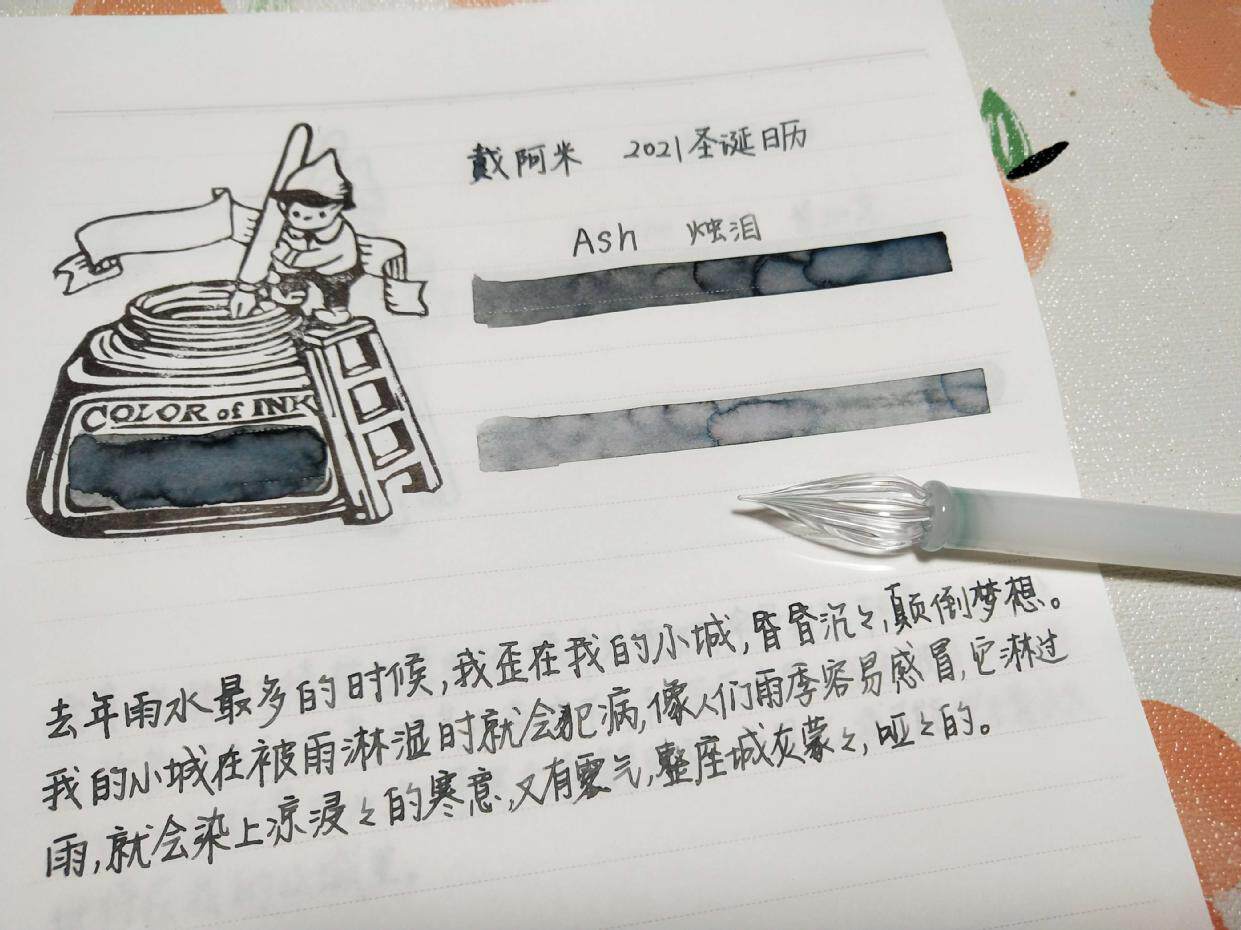 戴阿米 2021圣诞日历
Ash 烛泪
COLOR of INK
去年雨水最多的时候,我歪在我的小城,昏昏沉々,颠倒梦想。
我的小城在被雨淋湿时就会犯病,像人们雨季容易感冒,它淋过
雨,就会染上凉浸々的寒意,又有雾气,整座城灰蒙々,哑々的。